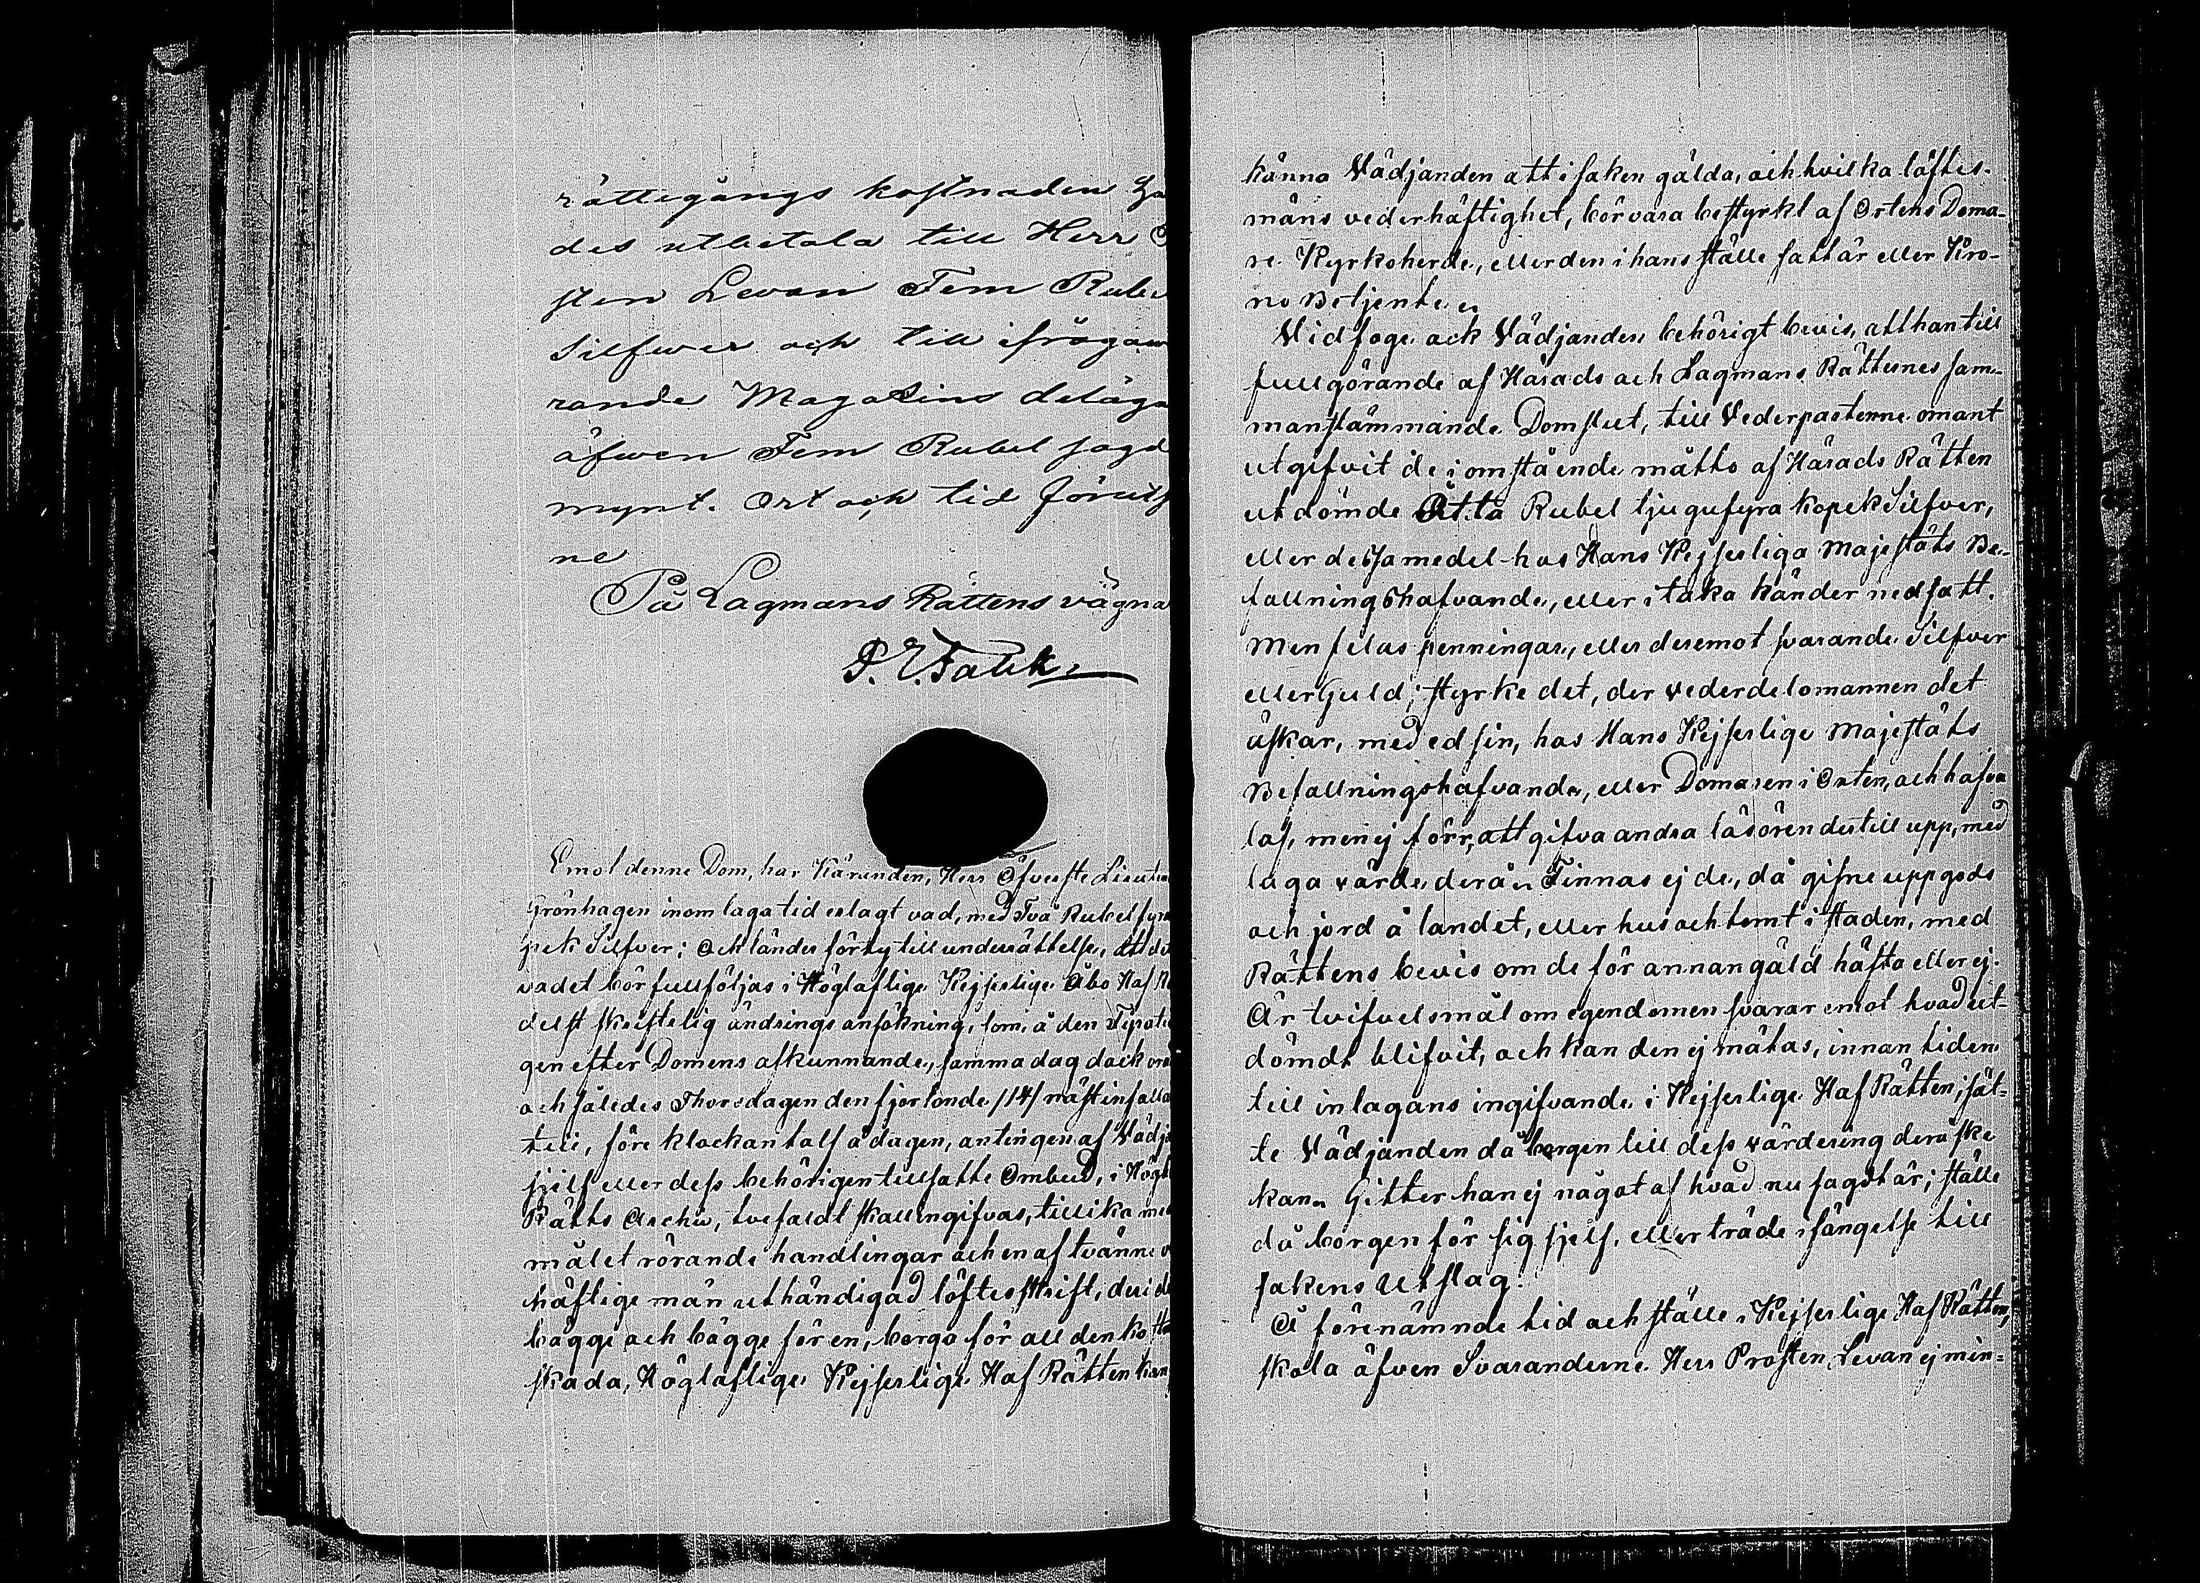 rättegångs kostnaden
des utbetala till Herr
sten Levan Fem Rube
Silfwer och till ifrågaw
rande Magazins deläga
äfwen Fem Rubel sagd
mynt. Ort och tid föruts
ne
På Lagmans Rättens vägna
Emot denne Dom, har Käranden, Herr Öfverste Lieuten
Grönhagen inom laga tid erlagt vad, med Två Rubel fyra
pek Silfver; Och länder förty till underrättelse, att de
vadet bör fullföljas i Högloflige Kejserlige Åbo Hof R
delst skriftelig ändrings ansökning, som å den Fyrati
gen efter Domens afkunnande, samma dag dock
och således Thorsdagen den fjortonde /14/ nästinfalla
före klockan tolf å dagen, antingen af Vädja
sjelf eller dess behörigen tillsatte Ombud, i Högl
Rätts Archiv, tvefaldt skall ingifvas, tillika med
målet rörande handlingar och en af tvänne v
häftige män uthändigad löftesskrift, deri de
bägge och bägge för en, borga för all den kostn
skada, Höglaflige Kejserlige Hof Rätten kan
känna Vädjanden att i saken gälda, och hvilka löftes-
mäns vederhäftighet, bör vara bestyrkt af Ortens Doma-
re Kyrkoherde, eller den i hans ställe satt är eller Kro-
no Betjente.
Vidfoge ock Vädjanden behörigt bevis, att han till
fullgörande af Härads och Lagmans Rätternes sam-
manstämmande Domslut, till Vederparterne emot
utgifvit de i omstående måtto af Härads Rätten
utdömde Åtta Rubel tjugufyra kopek Silfver,
eller dessa medel hos Hans Kejserliga Majestäts Be-
fallningshafvande, eller i taka händer nedsatt.
Men felas penningar, eller deremot svarande Silfver
eller Guld; styrke det, der vederdelomannen det
äskar, med ed sin, hos Hans Kejserlige Majestäts
Befallningshafvande, eller Domaren i Orten, och hafva
lof, men ej förr, att gifva andra lösören dertill upp, med
laga värde derå. Finnas ej de, då gifve upp gods
och jord å landet, eller hus och tomt i staden, med
Rättens bevis om de för annan gäld häfta eller ej.
Är tvifvelsmål om egendomen svarar emot hvad ut-
dömdt blifvit, och kan den ej mätas, innan tiden
till inlagans ingifvande i Kejserlige Hof Rätten; sät-
te Vädjanden då borgen till dess värdering derå ske
kan. Gitter han ej något af hvad nu sagdt är; ställe
då borgen för sig sjelf, eller träde i fängelse till
sakens utslag.
Å förenämnde tid och ställe i Kejserlige Hof Rätten,
skola äfven Svaranderne Herr Prosten Levan ej min-